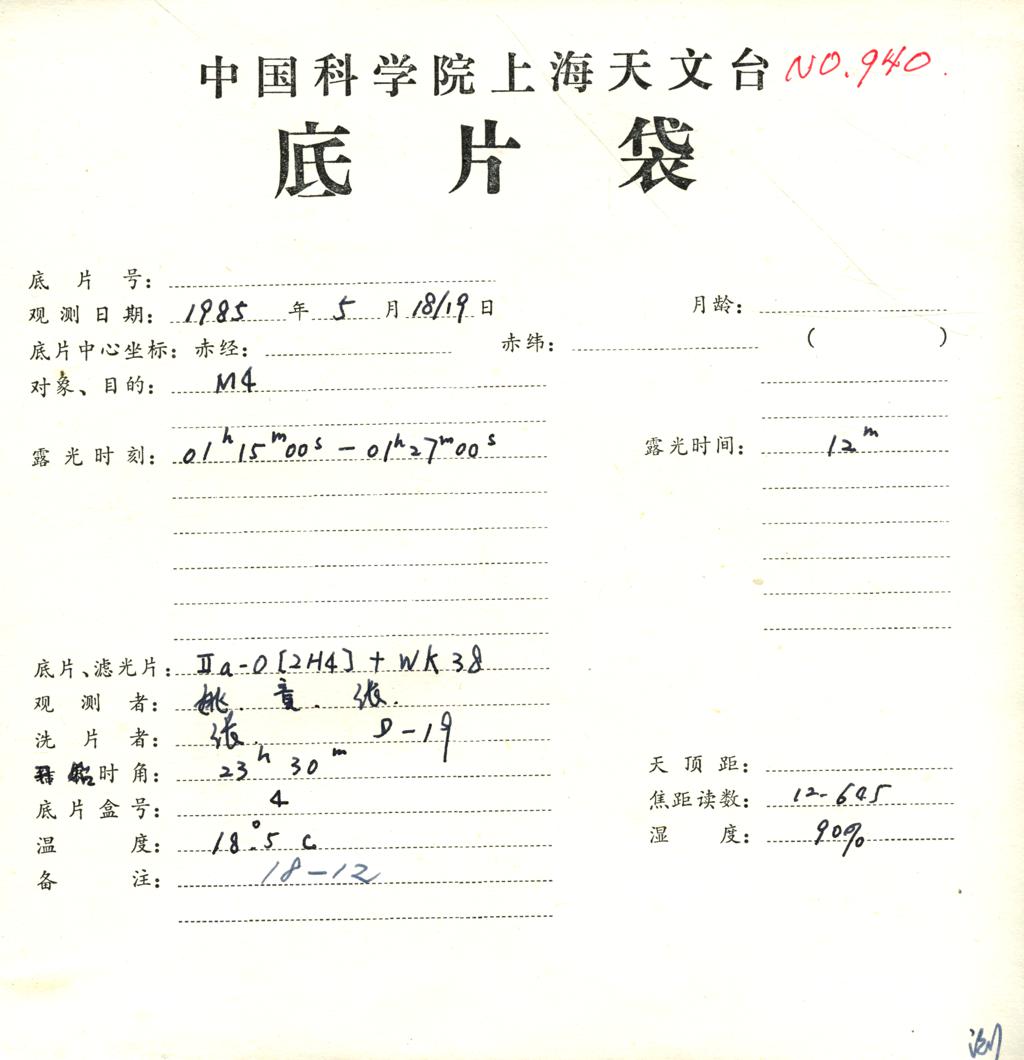 中国科学院上海天文台 NO.940.
底片袋
底片号:
观测日期: 1985 年 5 月 18/19 日 月龄:
底片中心坐标: 赤经: 赤纬: ( )
对象、目的: M4
露光时刻: 01ʰ15ᵐ00ˢ - 01ʰ27ᵐ00ˢ 露光时间: 12ᵐ
底片、滤光片: IIa-O [2H4] + WK38
观测者: 姚. 童. 张.
洗片者: 张. D-19
时角: 23ʰ 30ᵐ 天顶距:
底片盒号: 4 焦距读数: 12-645
温度: 18°.5 C 湿度: 90%
备注: 18-12
测